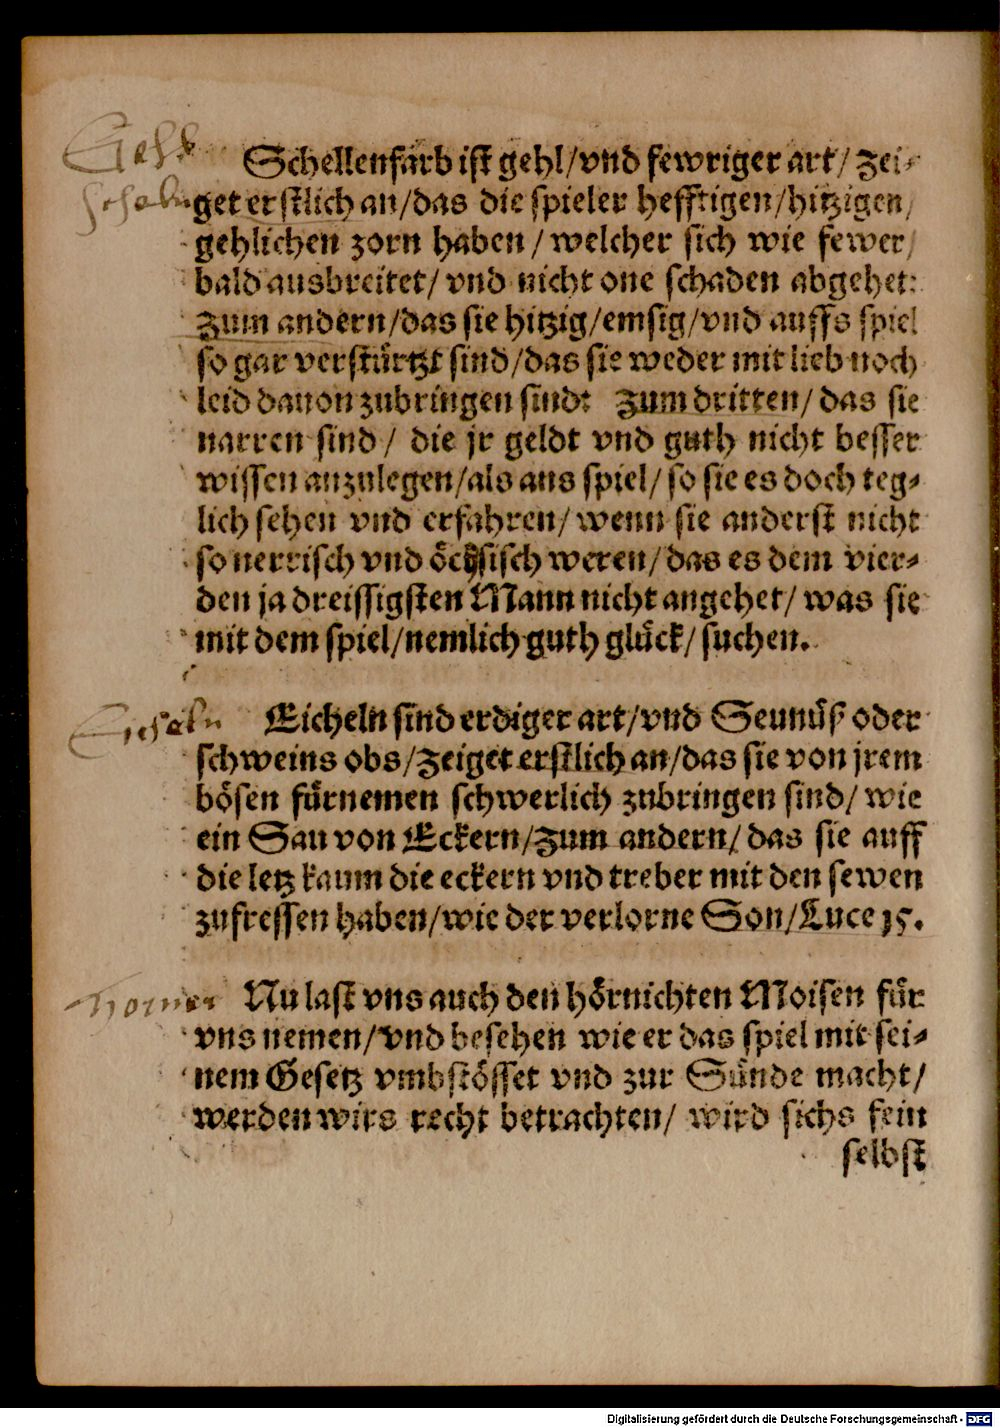 Gehl
Schellenfarb ist gehl/vnd fewriger art/ zei-
get erstlich an/das die spieler hefftigen/hitzigen/
gehlichen zorn haben/ welcher sich wie fewer/
bald ausbreitet/ vnd nicht one schaden abgehet:
Zum andern/das sie hitzig/emsig/vnd auffs spiel
so gar verstürtzt sind/das sie weder mit lieb noch
leid dauon zubringen sind: Zum dritten/ das sie
narren sind/ die jr geldt vnd guth nicht besser
wissen anzulegen/als ans spiel/ so sie es doch teg-
lich sehen vnd erfahren/ wenn sie anderst nicht
so nerrisch vnd öchsisch weren/ das es dem vier-
den ja dreissigsten Mann nicht angehet/ was sie
mit dem spiel/nemlich guth glück/ suchen.
Eicheln
Eicheln sind erdiger art/vnd Seunüß oder
schweins obs/Zeiget erstlich an/das sie von jrem
bösen fürnemen schwerlich zubringen sind/ wie
ein Sau von Eckern/Zum andern/ das sie auff
die letz kaum die eckern vnd treber mit den sewen
zufressen haben/wie der verlorne Son/Luce 15.
Horner
Nu last vns auch den hörnichten Moisen für
vns nemen/vnd besehen wie er das spiel mit sei-
nem Gesetz vmbstösset vnd zur Sünde macht/
werden wirs recht betrachten/ wird sichs fein
selbst
Digitalisierung gefördert durch die Deutsche Forschungsgemeinschaft - DFG